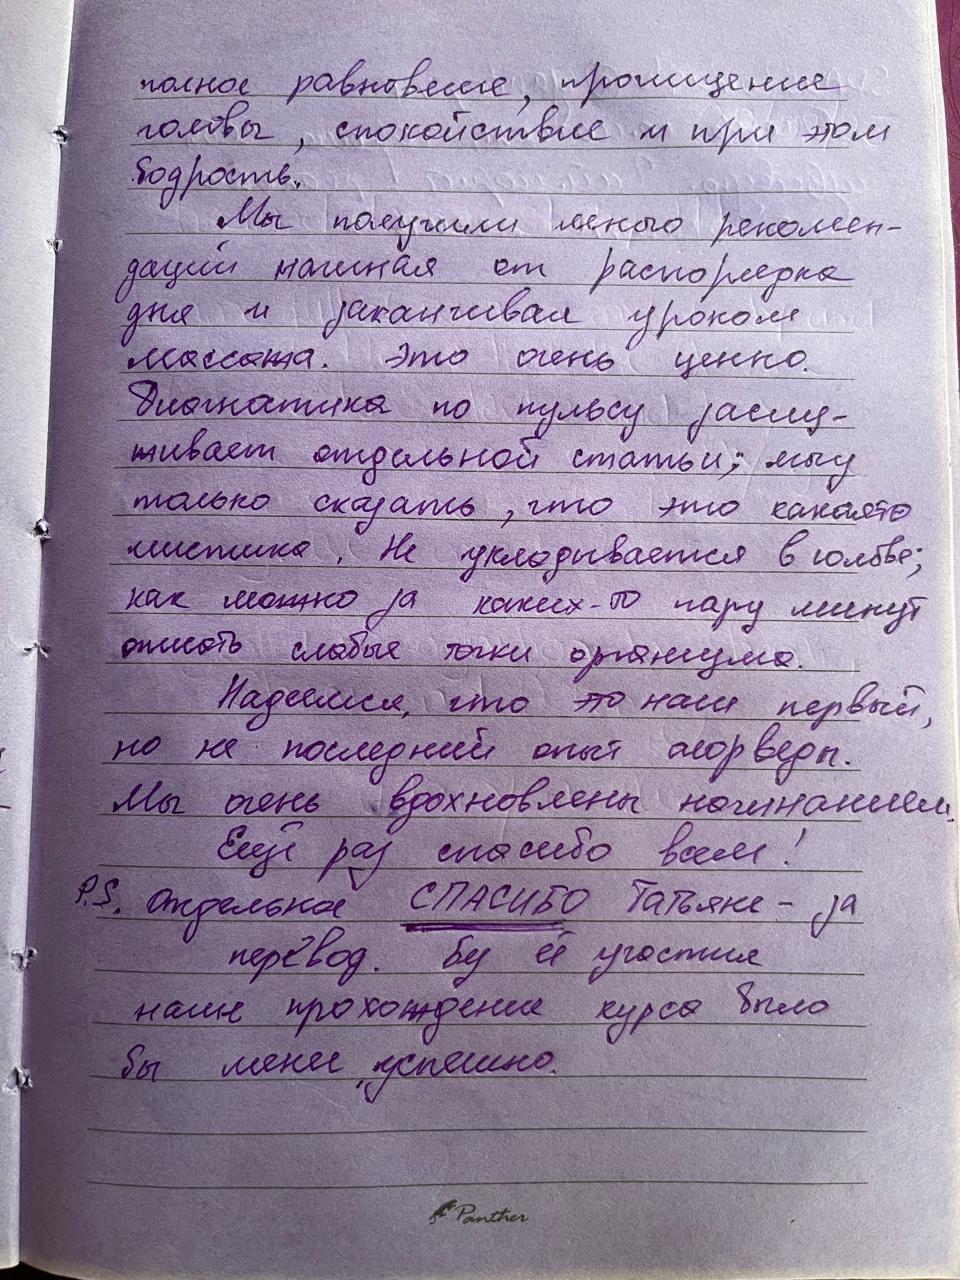 полное равновесие, прочищение
головы, спокойствие и при этом
бодрость.
Мы получили много рекомен-
даций начиная от распорядка
дня и заканчивая уроком
массажа. Это очень ценно.
Диагнатика по пульсу заслу-
живает отдельной статьи; могу
только сказать, что это какаято
мистика. Не укладывается в голове;
как можно за каких-то пару минут
описать слабые точки организма.
Надеемся, что это наш первый,
но не последний опыт аюрведы.
Мы очень вдохновлены начинанием.
Ещё раз спасибо всем!
P.S. Отдельное СПАСИБО Татьяне - за
перевод. Без её участия
наше прохождение курса было
бы менее успешно.
Panther